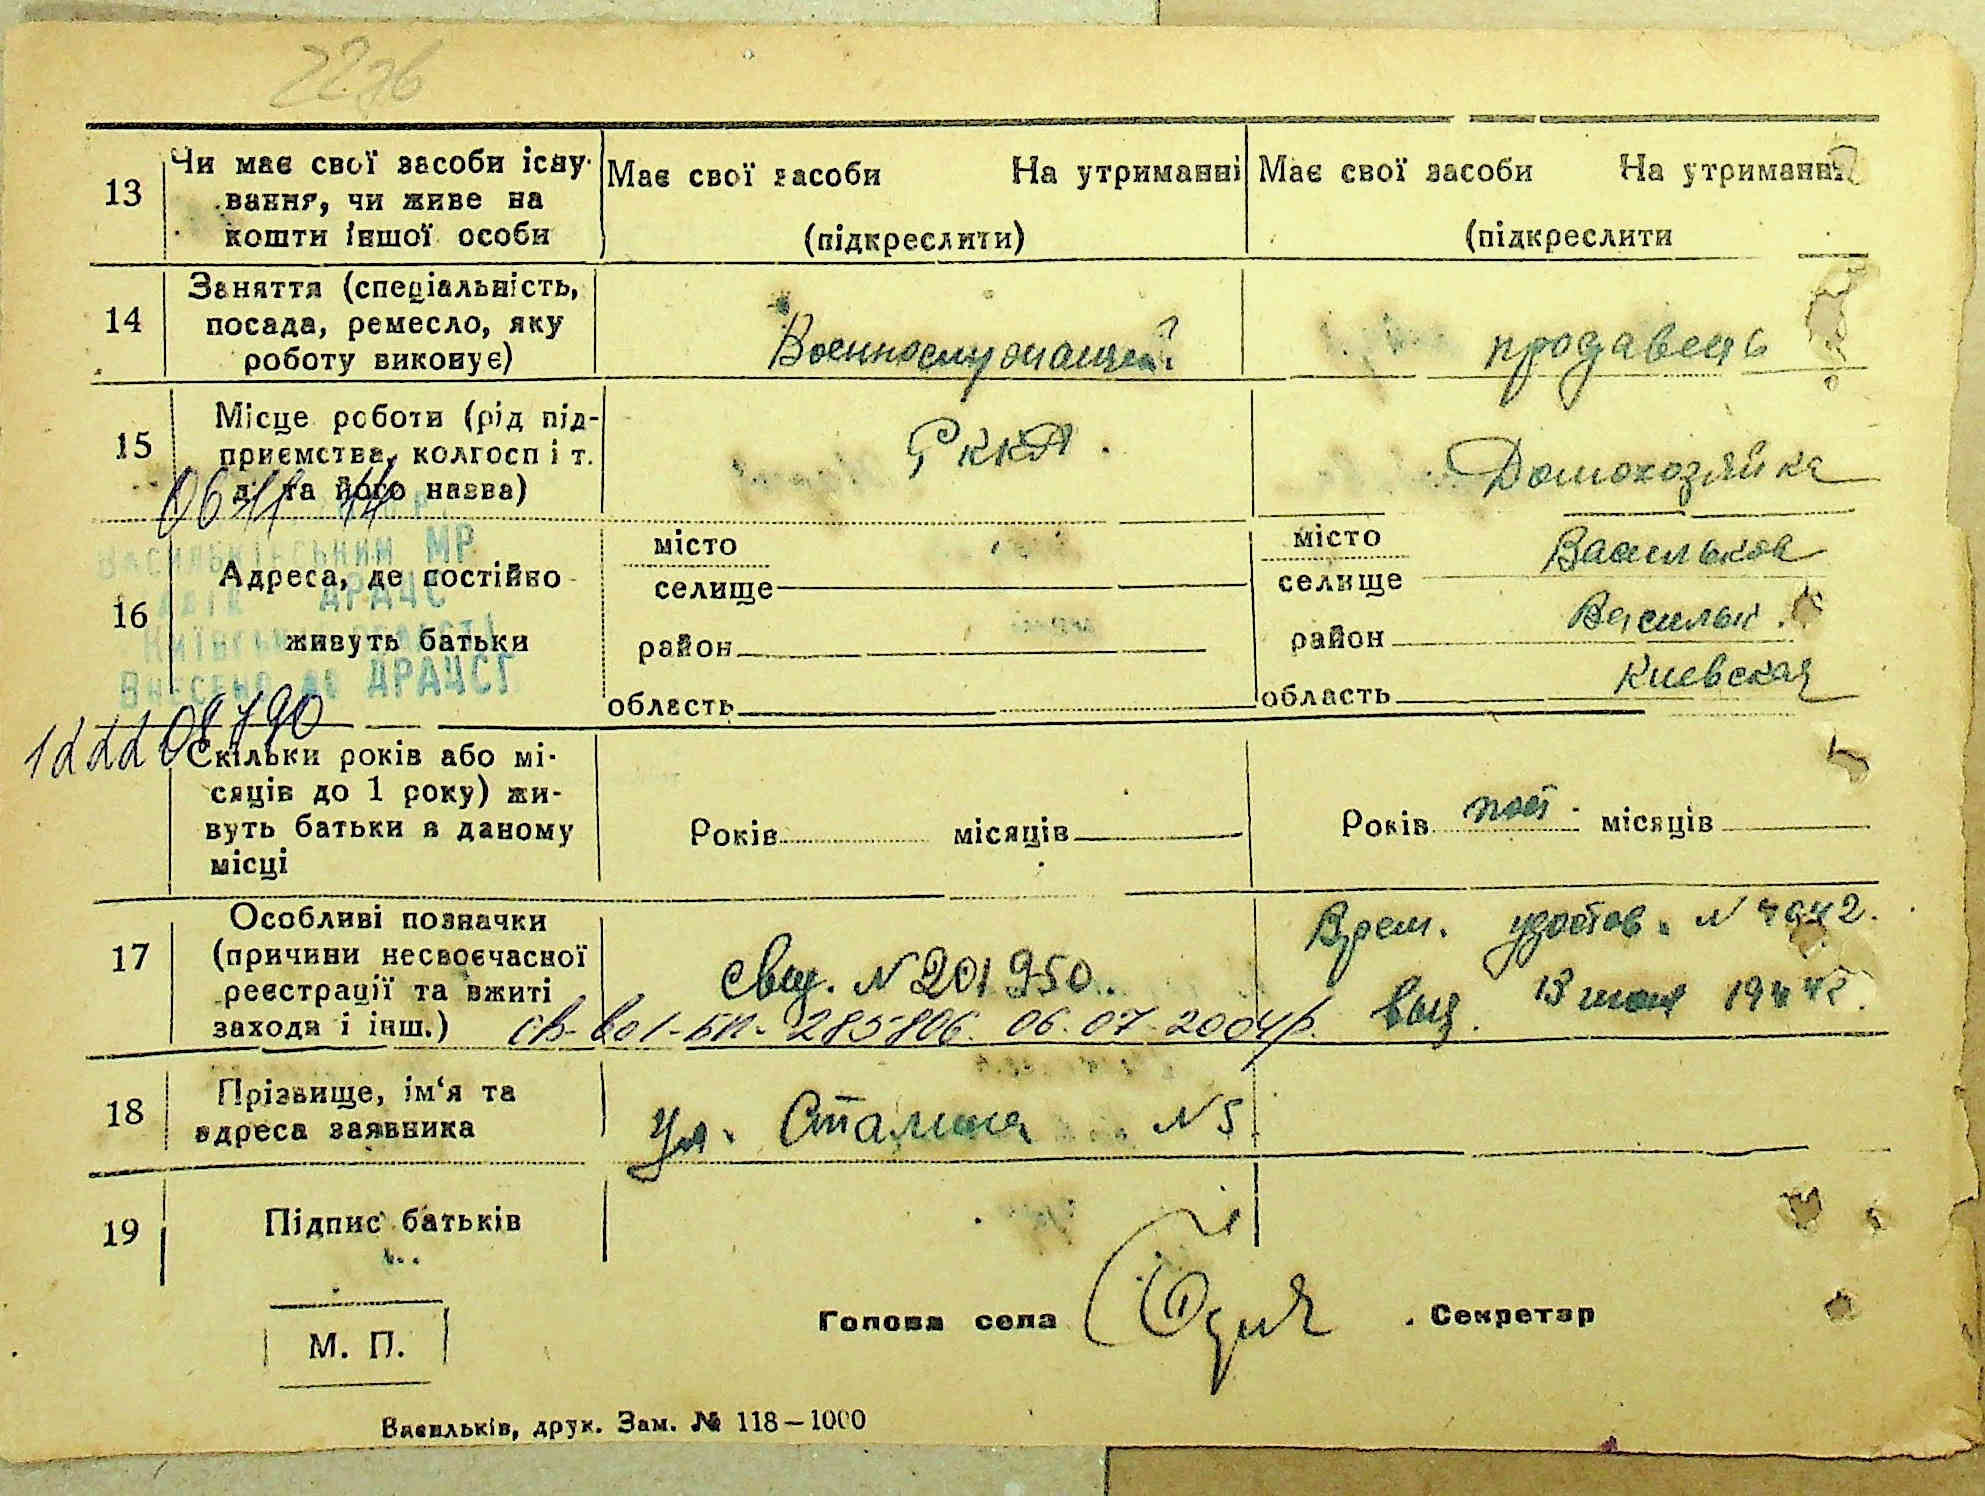 13
Чи має свої засоби існу-
вання, чи живе на
кошти іншої особи
Має свої засоби На утриманні
(підкреслити)
Має свої засоби На утриманні
(підкреслити
14
Заняття (спеціальність,
посада, ремесло, яку
роботу виконує)
Военнослужащий
продавець
15
Місце роботи (рід під-
приємства, колгосп і т.
д. та його назва)
РККА.
Домохозяйка
Васильківським МР
ДРАЦС
Київської області
Внесено до ДРАЦСГ
16
Адреса, де постійно
живуть батьки
місто
селище
район
область
місто Васильков
селище
район Васильк.
область Киевская
Скільки років або мі-
сяців до 1 року) жи-
вуть батьки в даному
місці
Років місяців
Років пост. місяців
17
Особливі позначки
(причини несвоєчасної
реєстрації та вжиті
заходи і інш.)
свид. N 201950.
285806. 06.07.2004р.
Врем. удостов. N
выд. 13 июня
18
Прізвище, ім‘я та
адреса заявника
Ул. Сталина N 5.
19
Підпис батьків
М. П.
Голова села Секретар
Васильків, друк. Зам. № 118—1000